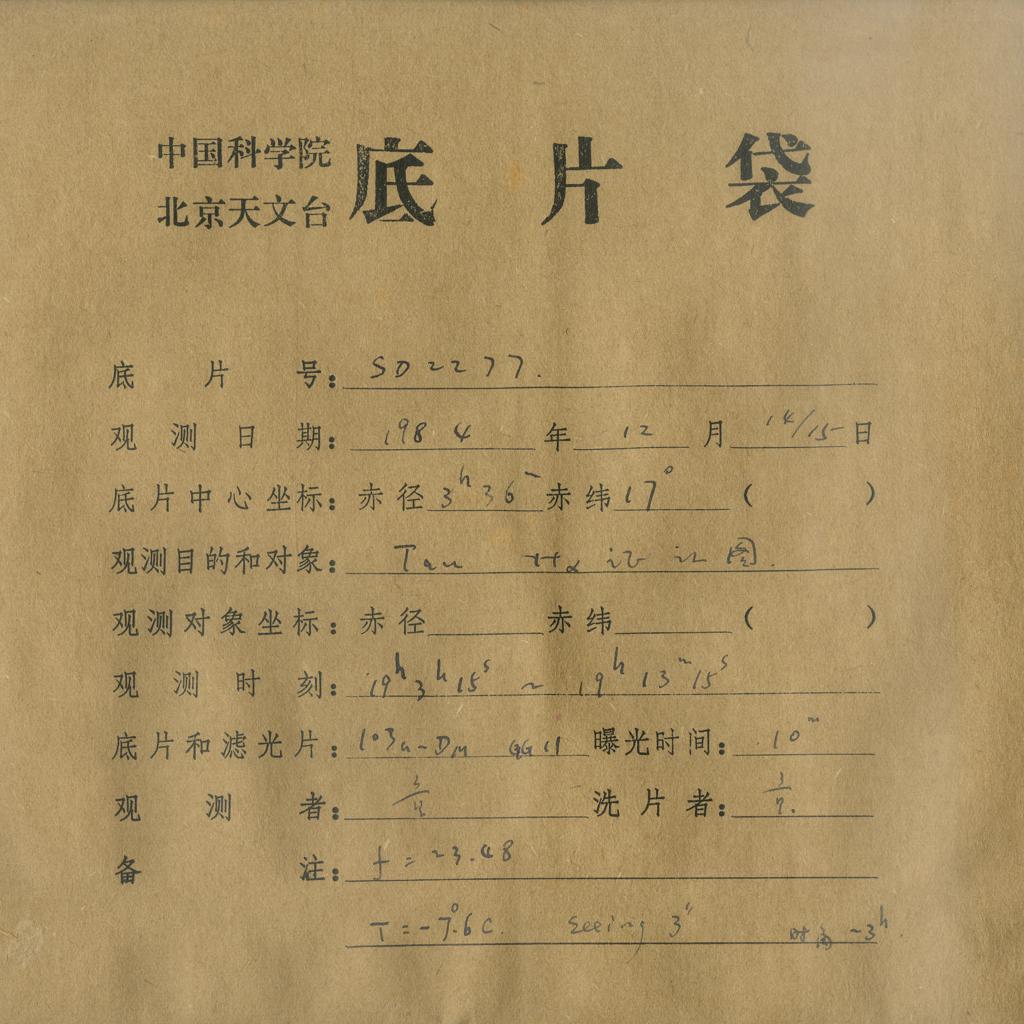 中国科学院
北京天文台
底片袋
底片号: SD2277.
观测日期: 1984年12月14/15日
底片中心坐标: 赤径3h36m赤纬17°( )
观测目的和对象: Tau Hα 证认图.
观测对象坐标: 赤径 赤纬 ( )
观测时刻: 19h3h15s ~ 19h13m15s
底片和滤光片: 103a-D GG11 曝光时间: 10m
观测者: 洗片者:
备注: f = 23.48
T = -7.6°C. Seeing 3" 时角 ~3h